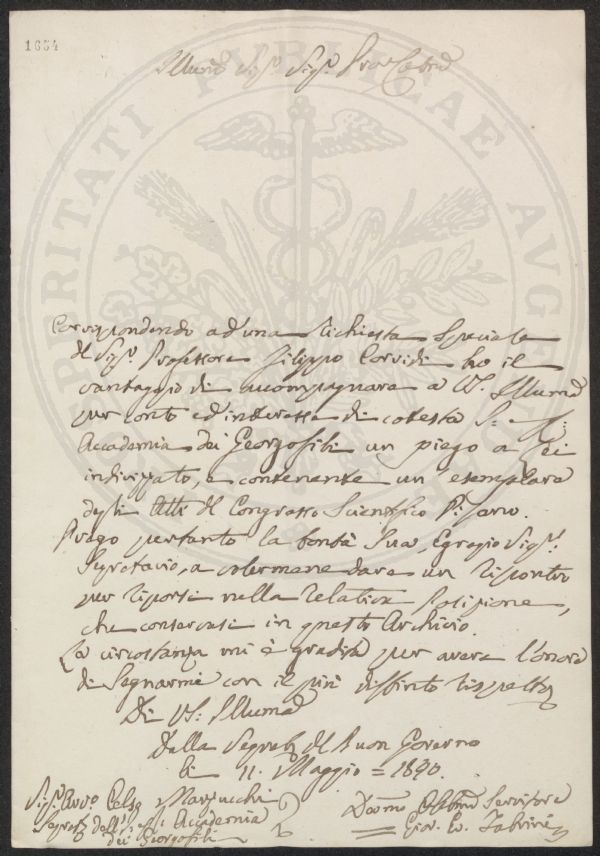 1654
Illmo Sigr. Sigr. Pron Colmo
Corrispondendo ad una richiesta speciale
del Sigr. Professore Filippo Corridi ho il
vantaggio di accompagnare a VS. Illuma
per conto ed interesse di cotesta I: e R:
Accademia dei Georgofili un piego a Lei
indirizzato, e contenente un esemplare
degli Atti del Congresso Scientifico Pisano.
Prego pertanto la bontà Sua, Egregio Sigr.
Segretario, a volermene dare un riscontro
per riporsi nella relativa Posizione,
che conservasi in questo Archivio.
La circostanza mi è gradita per avere l'onore
di segnarmi con il più distinto rispetto
Di VS: Illuma
Dalla Segreta del Buon Governo
li 11. Maggio = 1840.
Sigr. Avvo Celso Marzucchi
Segreto dell' I. e R. Accademia
dei Georgofili
Devmo Obblmo Servitore
Giov. Fabrini
PROSPERITATI PUBLICAE AUGENDAE